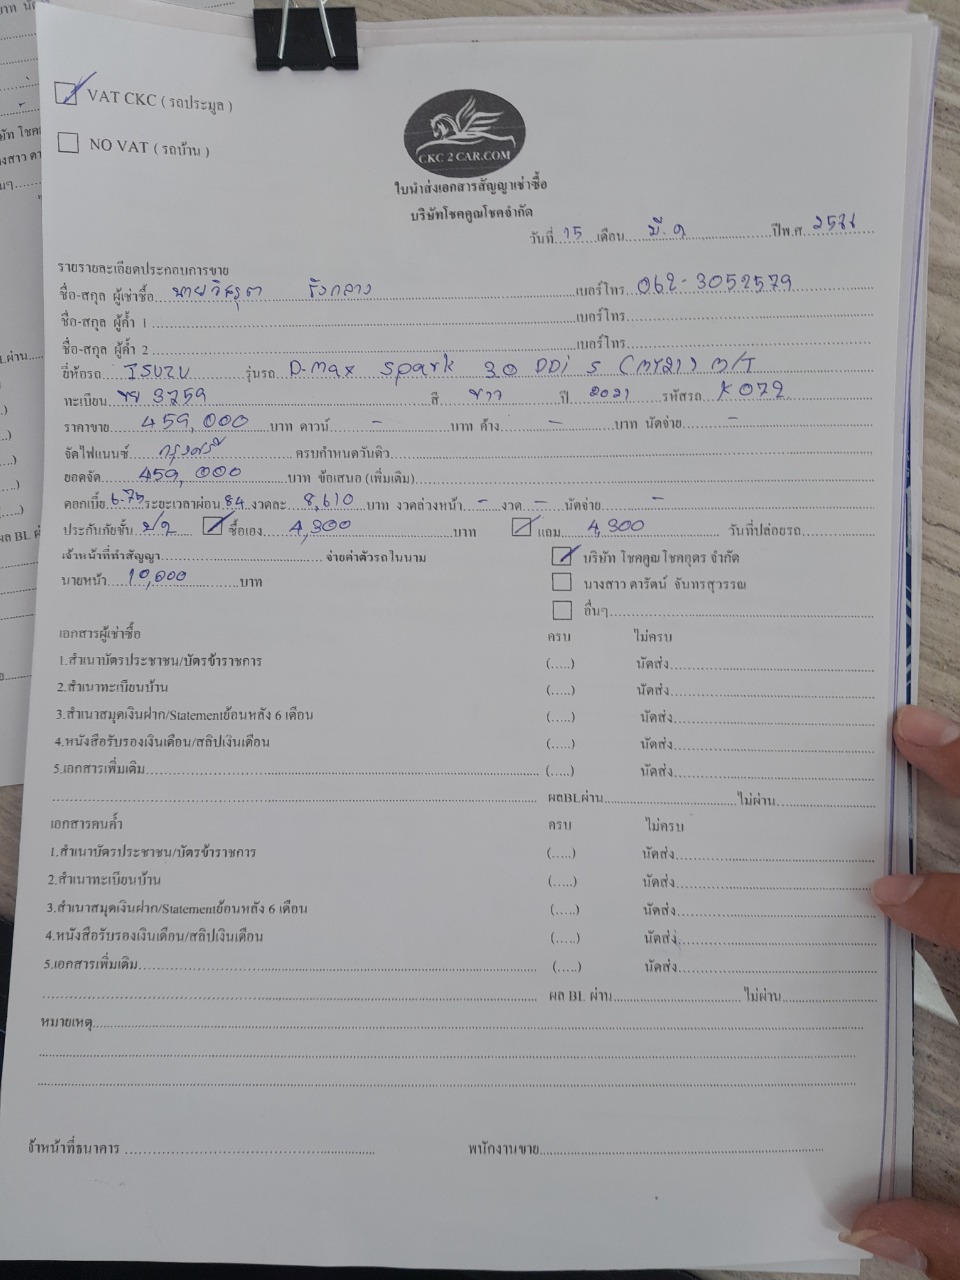 VAT CKC ( รถประมูล )
NO VAT ( รถบ้าน )
CKC 2 CAR.COM
ใบนำส่งเอกสารสัญญาเช่าซื้อ
บริษัทโชคคูณโชคจำกัด
วันที่ 15 เดือน มี.ค ปีพ.ศ. 2566
รายรายละเอียดประกอบการขาย
ชื่อ-สกุล ผู้เช่าซื้อ นายวิสรุตา รังกลาง เบอร์โทร 062-3052579
ชื่อ-สกุล ผู้ค้ำ 1 เบอร์โทร
ชื่อ-สกุล ผู้ค้ำ 2 เบอร์โทร
ยี่ห้อรถ ISUZU รุ่นรถ D-max Spark 30 DDi S (MY21) M/T
ทะเบียน 3759 สี ขาว ปี 2021 รหัสรถ K072
ราคาขาย 459,000 บาท ดาวน์ - บาท ค้าง - บาท นัดจ่าย -
จัดไฟแนนซ์ กรุงศรี ครบกำหนดวันดิว
ยอดจัด 459,000 บาท ข้อเสนอ (เพิ่มเติม)
ดอกเบี้ย 6.75 ระยะเวลาผ่อน 84 งวดละ 8,610 บาท งวดล่างหน้า - งวด - นัดจ่าย -
ประกันภัยชั้น ซื้อเอง 4,300 บาท แถม 4,300 วันที่ปล่อยรถ
เจ้าหน้าที่ทำสัญญา จ่ายค่าตัวรถในนาม บริษัท โชคคูณโชคอุดร จำกัด
นายหน้า 10,000 บาท นางสาว ดารัตน์ จันทรสุวรรณ
อื่นๆ
เอกสารผู้เช่าซื้อ ครบ ไม่ครบ
1.สำเนาบัตรประชาชน/บัตรข้าราชการ (.....) นัดส่ง
2.สำเนาทะเบียนบ้าน (.....) นัดส่ง
3.สำเนาสมุดเงินฝาก/Statementย้อนหลัง 6 เดือน (.....) นัดส่ง
4.หนังสือรับรองเงินเดือน/สลิปเงินเดือน (.....) นัดส่ง
5.เอกสารเพิ่มเติม (.....) นัดส่ง
ผลBLผ่าน ไม่ผ่าน
เอกสารคนค้ำ ครบ ไม่ครบ
1.สำเนาบัตรประชาชน/บัตรข้าราชการ (.....) นัดส่ง
2.สำเนาทะเบียนบ้าน (.....) นัดส่ง
3.สำเนาสมุดเงินฝาก/Statementย้อนหลัง 6 เดือน (.....) นัดส่ง
4.หนังสือรับรองเงินเดือน/สลิปเงินเดือน (.....) นัดส่ง
5.เอกสารเพิ่มเติม (.....) นัดส่ง
ผล BL ผ่าน ไม่ผ่าน
หมายเหตุ
จ้าหน้าที่ธนาคาร พนักงานขาย